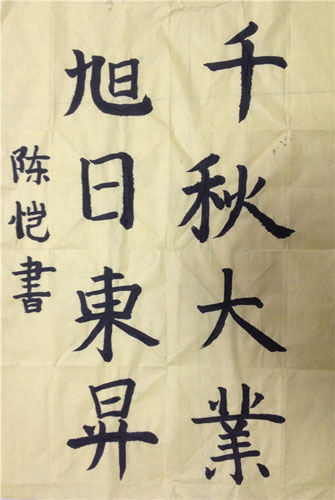 千秋大業
旭日東昇
陈恺書